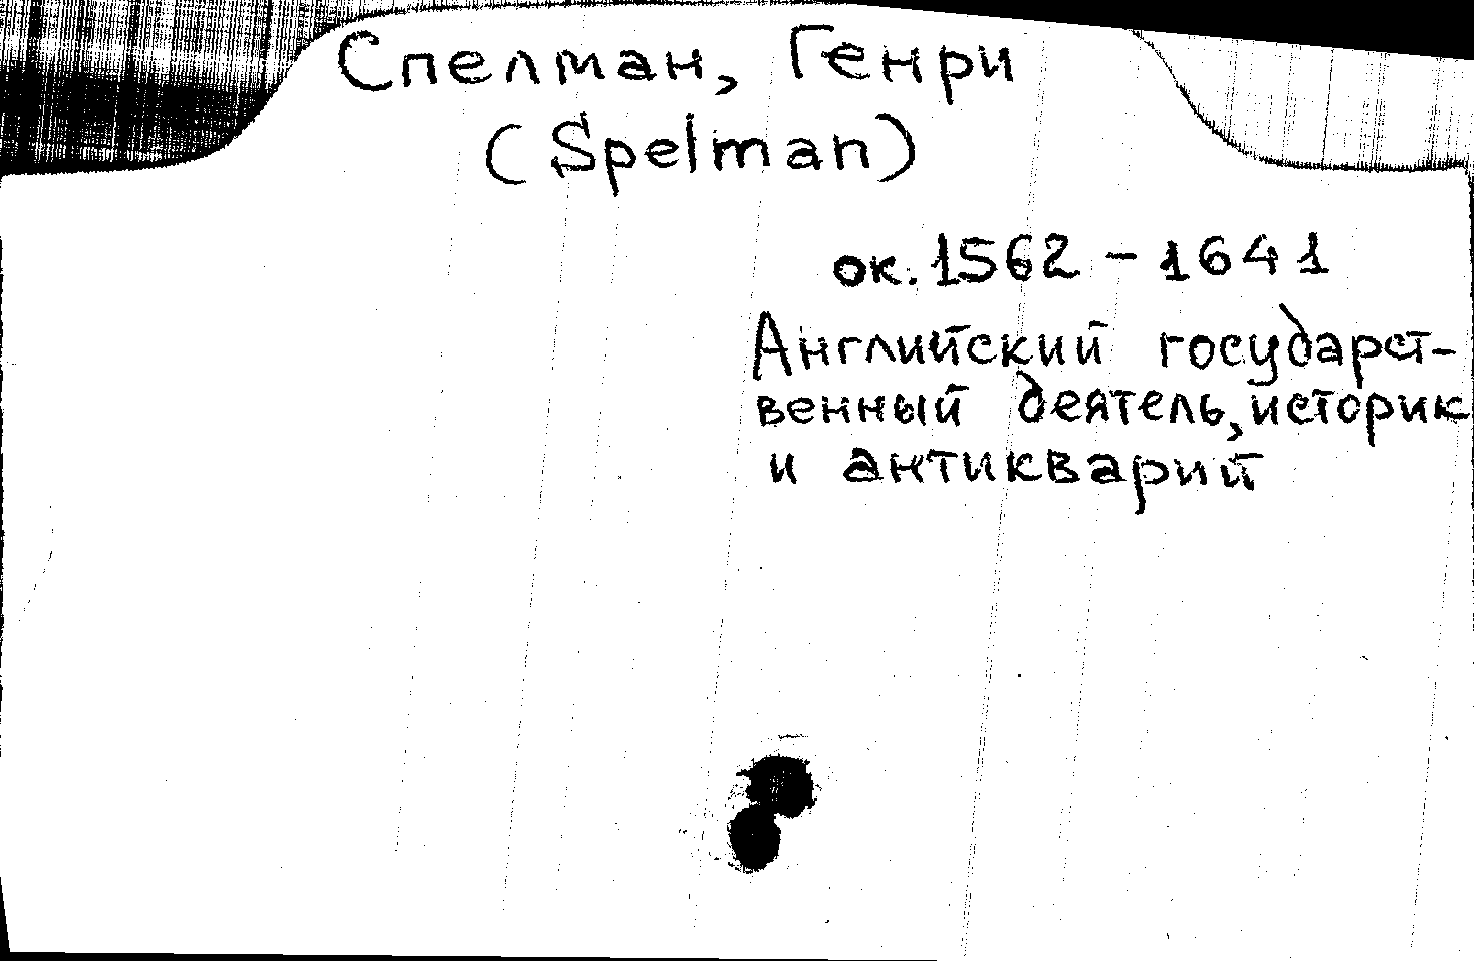 Спелман, Генри
(Spelman)
ок. 1562 - 1641
Английский государст-
венный деятель, историк
и антикварий